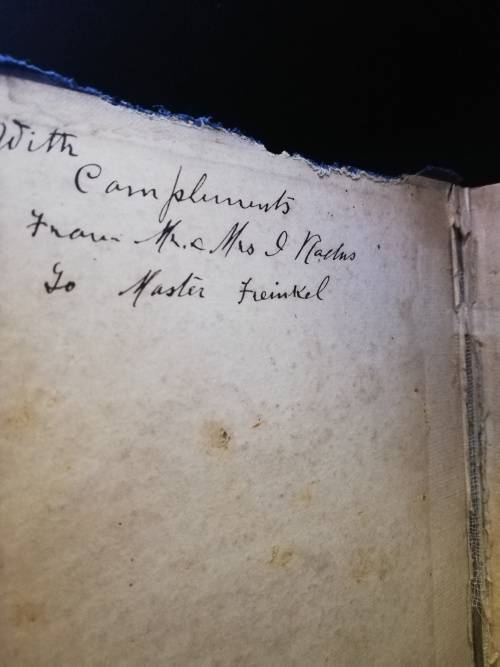 With
Complements
From Mr. & Mrs I
To Master Freinkel